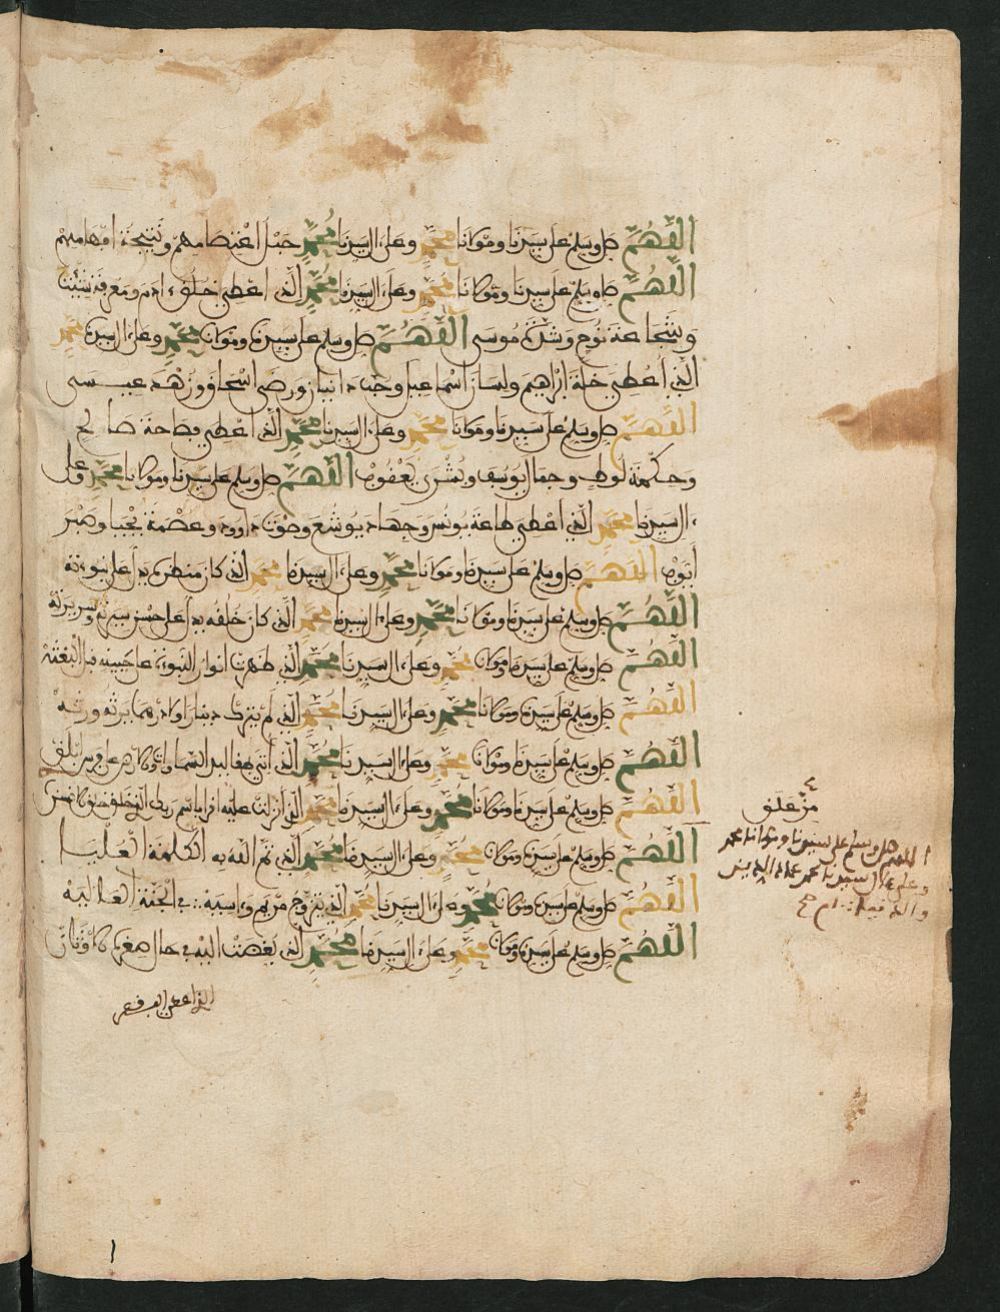 اللهم صل وسلم على سيدنا ومولانا محمد وعلى ءال سيدنا محمد حبل اعتصامهم ونتيجة افهامهم
اللهم صل وسلم على سيدنا ومولانا محمد وعلى ءال سيدنا محمد الذي اعطي خلق ءادم ومعرفة شيث
وشجاعة نوح وشدة موسى اللهم صل وسلم على سيدنا ومولانا محمد وعلى ءال سيدنا محمد
الذي اعطي خلة ابراهيم ولسان اسماعيل وحب دانيال ورضى اسحاق وزهد عيسى
اللهم صل وسلم على سيدنا ومولانا محمد وعلى ءال سيدنا محمد الذي اعطي فصاحة صالح
وحكمة لوط وجمال يوسف وبشرى يعقوب اللهم صل وسلم على سيدنا ومولانا محمد وعلى
ءال سيدنا محمد الذي اعطي طاعة يونس وجهاد يوشع وصوت داوود وعصمة يحيا وصبر
ايوب اللهم صل وسلم على سيدنا ومولانا محمد وعلى ءال سيدنا محمد الذي كان منظره يدل على نبوءته
اللهم صل وسلم على سيدنا ومولانا محمد وعلى ءال سيدنا محمد الذي كان خلقه يدل على حسن سيرته وسريرته
اللهم صل وسلم على سيدنا ومولانا محمد وعلى ءال سيدنا محمد الذي ظهرت انوار النبوءة على جبينه قبل البعثة
اللهم صل وسلم على سيدنا ومولانا محمد وعلى ءال سيدنا محمد الذي لم يترك دينارا ولا درهما يرثه ورثه
اللهم صل وسلم على سيدنا ومولانا محمد وعلى ءال سيدنا محمد الذي اتي بمقاليد السماوات على فرس ابلق
اللهم صل وسلم على سيدنا ومولانا محمد وعلى ءال سيدنا محمد الذي انزلت عليه اقرا باسم ربك الذي خلق خلق الانسن
من علق
اللهم صل وسلم على سيدنا ومولانا محمد وعلى ءال سيدنا محمد الذي تمم الله به الكلمة العليا
اللهم صل وسلم على سيدنا ومولانا محمد
وعلى ءال سيدنا محمد عماد الدين
اللهم صل وسلم على سيدنا ومولانا محمد وعلى ءال سيدنا محمد الذي يتزوج مريم وءاسية في الجنة العالية
اللهم صل وسلم على سيدنا ومولانا محمد وعلى ءال سيدنا محمد الذي بغضت اليه في حال صغره